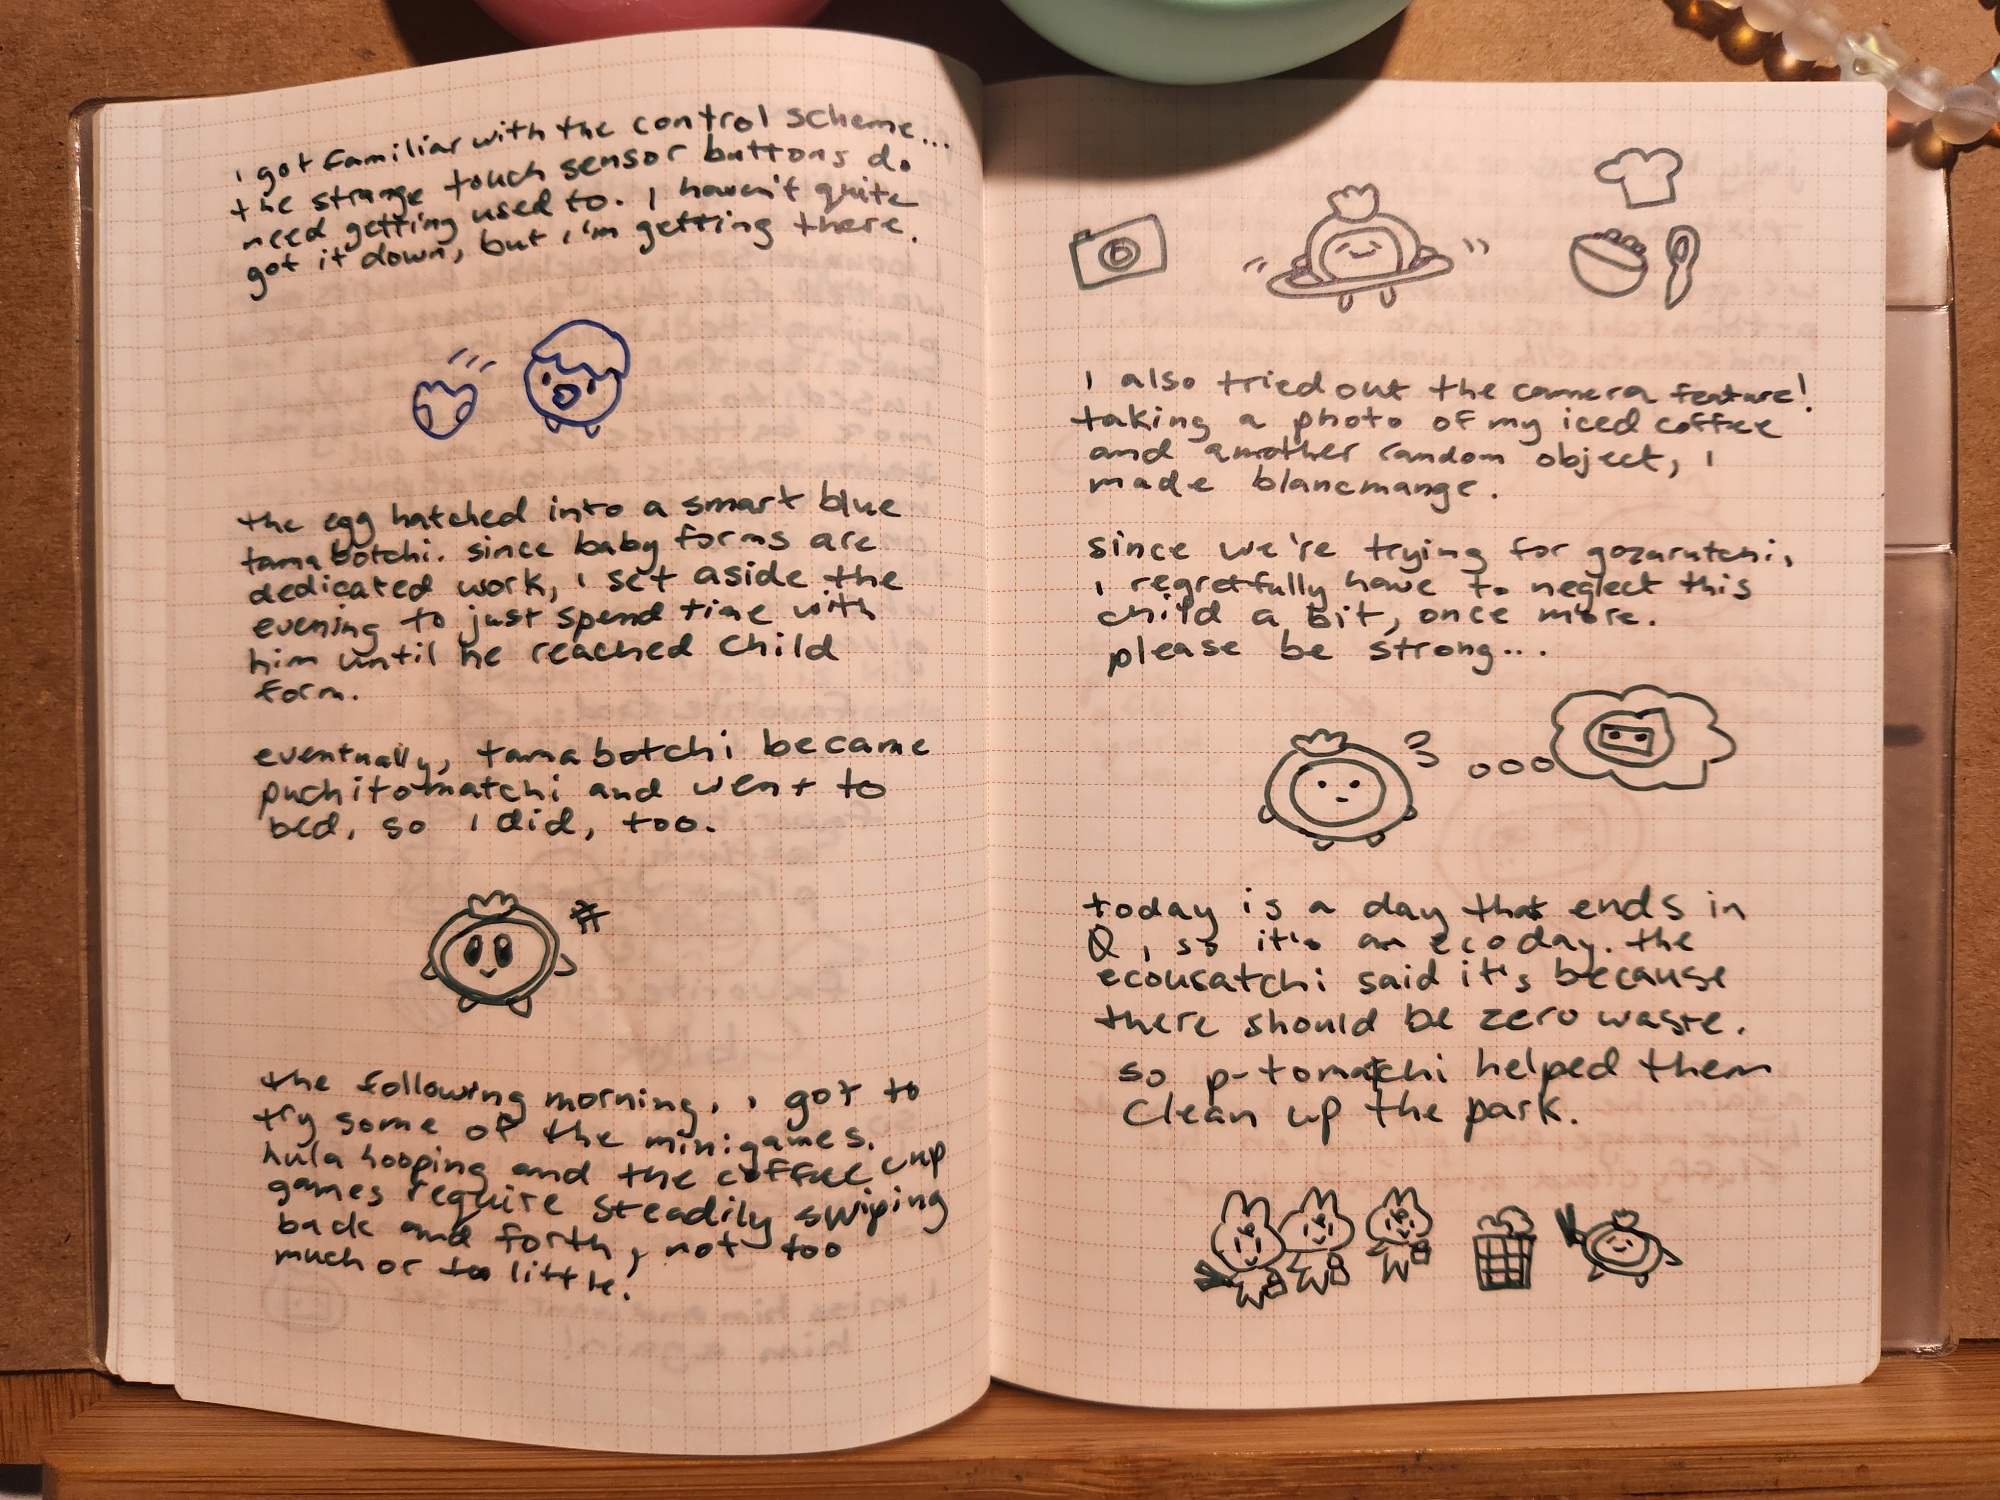 i got familiar with the control scheme...
the strange touch sensor buttons do
need getting used to. i haven't quite
got it down, but i'm getting there.
the egg hatched into a smart blue
tamabotchi. since baby forms are
dedicated work, i set aside the
evening to just spend time with
him until he reached child
form.
eventually, tamabotchi became
puchitomatchi and went to
bed, so i did, too.
the following morning, i got to
try some of the minigames.
hula hooping and the coffee cup
games require steadily swiping
back and forth, not too
much or too little!
i also tried out the camera feature!
taking a photo of my iced coffee
and another random object, i
made blancmange.
since we're trying for gozarutchi,
i regretfully have to neglect this
child a bit, once more.
please be strong...
today is a day that ends in
0, so it's an eco day. the
ecousatchi said it's because
there should be zero waste.
so p-tomatchi helped them
clean up the park.